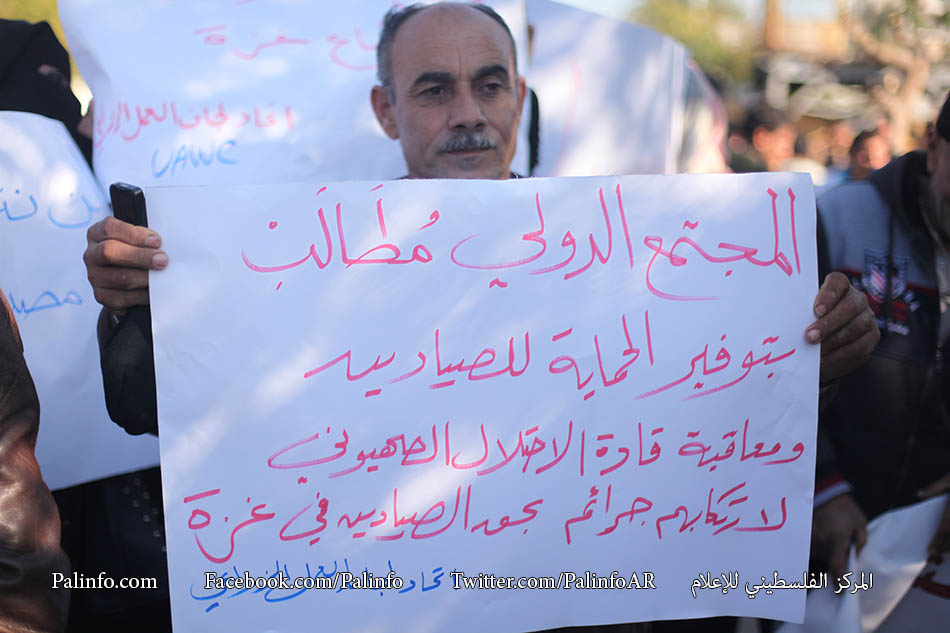 غزة
اتحاد لجان العمل الزراعي
UAWC
المجتمع الدولي مُطَالَبْ
بتوفير الحماية للصيادين
ومعاقبة قادة الاحتلال الصهيوني
لارتكابهم جرائم بحق الصيادين في غزة
اتحاد لجان العمل الزراعي
Palinfo.com Facebook.com/Palinfo Twitter.com/PalinfoAR المركز الفلسطيني للإعلام